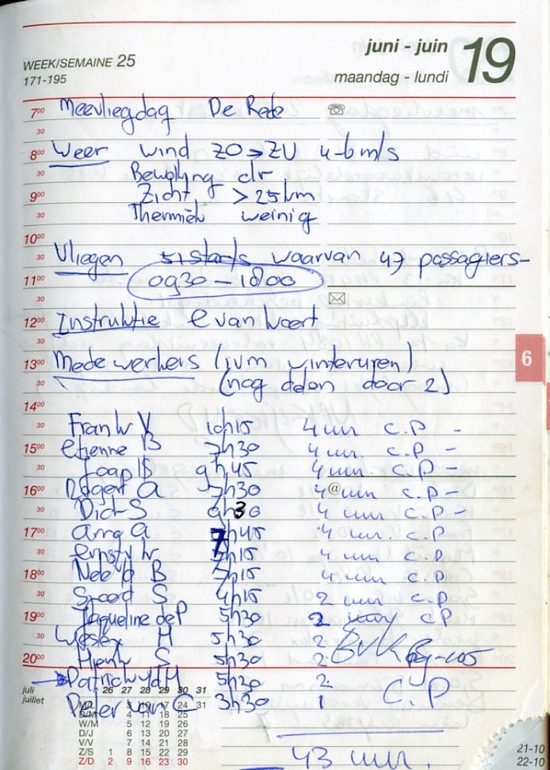 juni - juin 19
WEEK/SEMAINE 25
171-195
maandag - lundi
7⁰⁰ Meevliegdag De Rede
30
8⁰⁰ Weer wind ZO->ZU 4-6 m/s
30 Bewolking clr
9⁰⁰ Zicht > 25 km
30 Thermiek weinig
10⁰⁰
30 Vliegen 51 starts waarvan 47 passagiers-
11⁰⁰ 0930 - 1800
30
12⁰⁰ Instruktie E van Weert
30
13⁰⁰ Medewerkers (ivm winteruren)
30 (nog delen door 2)
14⁰⁰
30 Frank V 10h15 4 uur C.P -
15⁰⁰ Etienne B 7h30 4 uur C.P -
30 Jaap B 9h45 4 uur C.P -
16⁰⁰ Rogert A 7h30 4 uur C.P -
30 Dick S 9h30 4 uur C.P -
17⁰⁰ 7h45 4 uur C.P
30 5h15 4 uur C.P
18⁰⁰ B 5h15 4 uur C.P
30 Sjoerd S 4h15 2 uur C.P
19⁰⁰ Jaqueline de P 5h30 2 CP
30 Wesley H 5h30 2
20⁰⁰ Henk S 5h30 2
Patrick vd H 5h30 2
Peter van C 3h30 1 C.P
43 uur.
juli
juillet
26 27 28 29 30 31
24 31
D/M 4 11 18 25
W/M 5 12 19 26
D/J 6 13 20 27
V/V 7 14 21 28
Z/S 1 8 15 22 29
Z/D 2 9 16 23 30
6
21-10
22-10